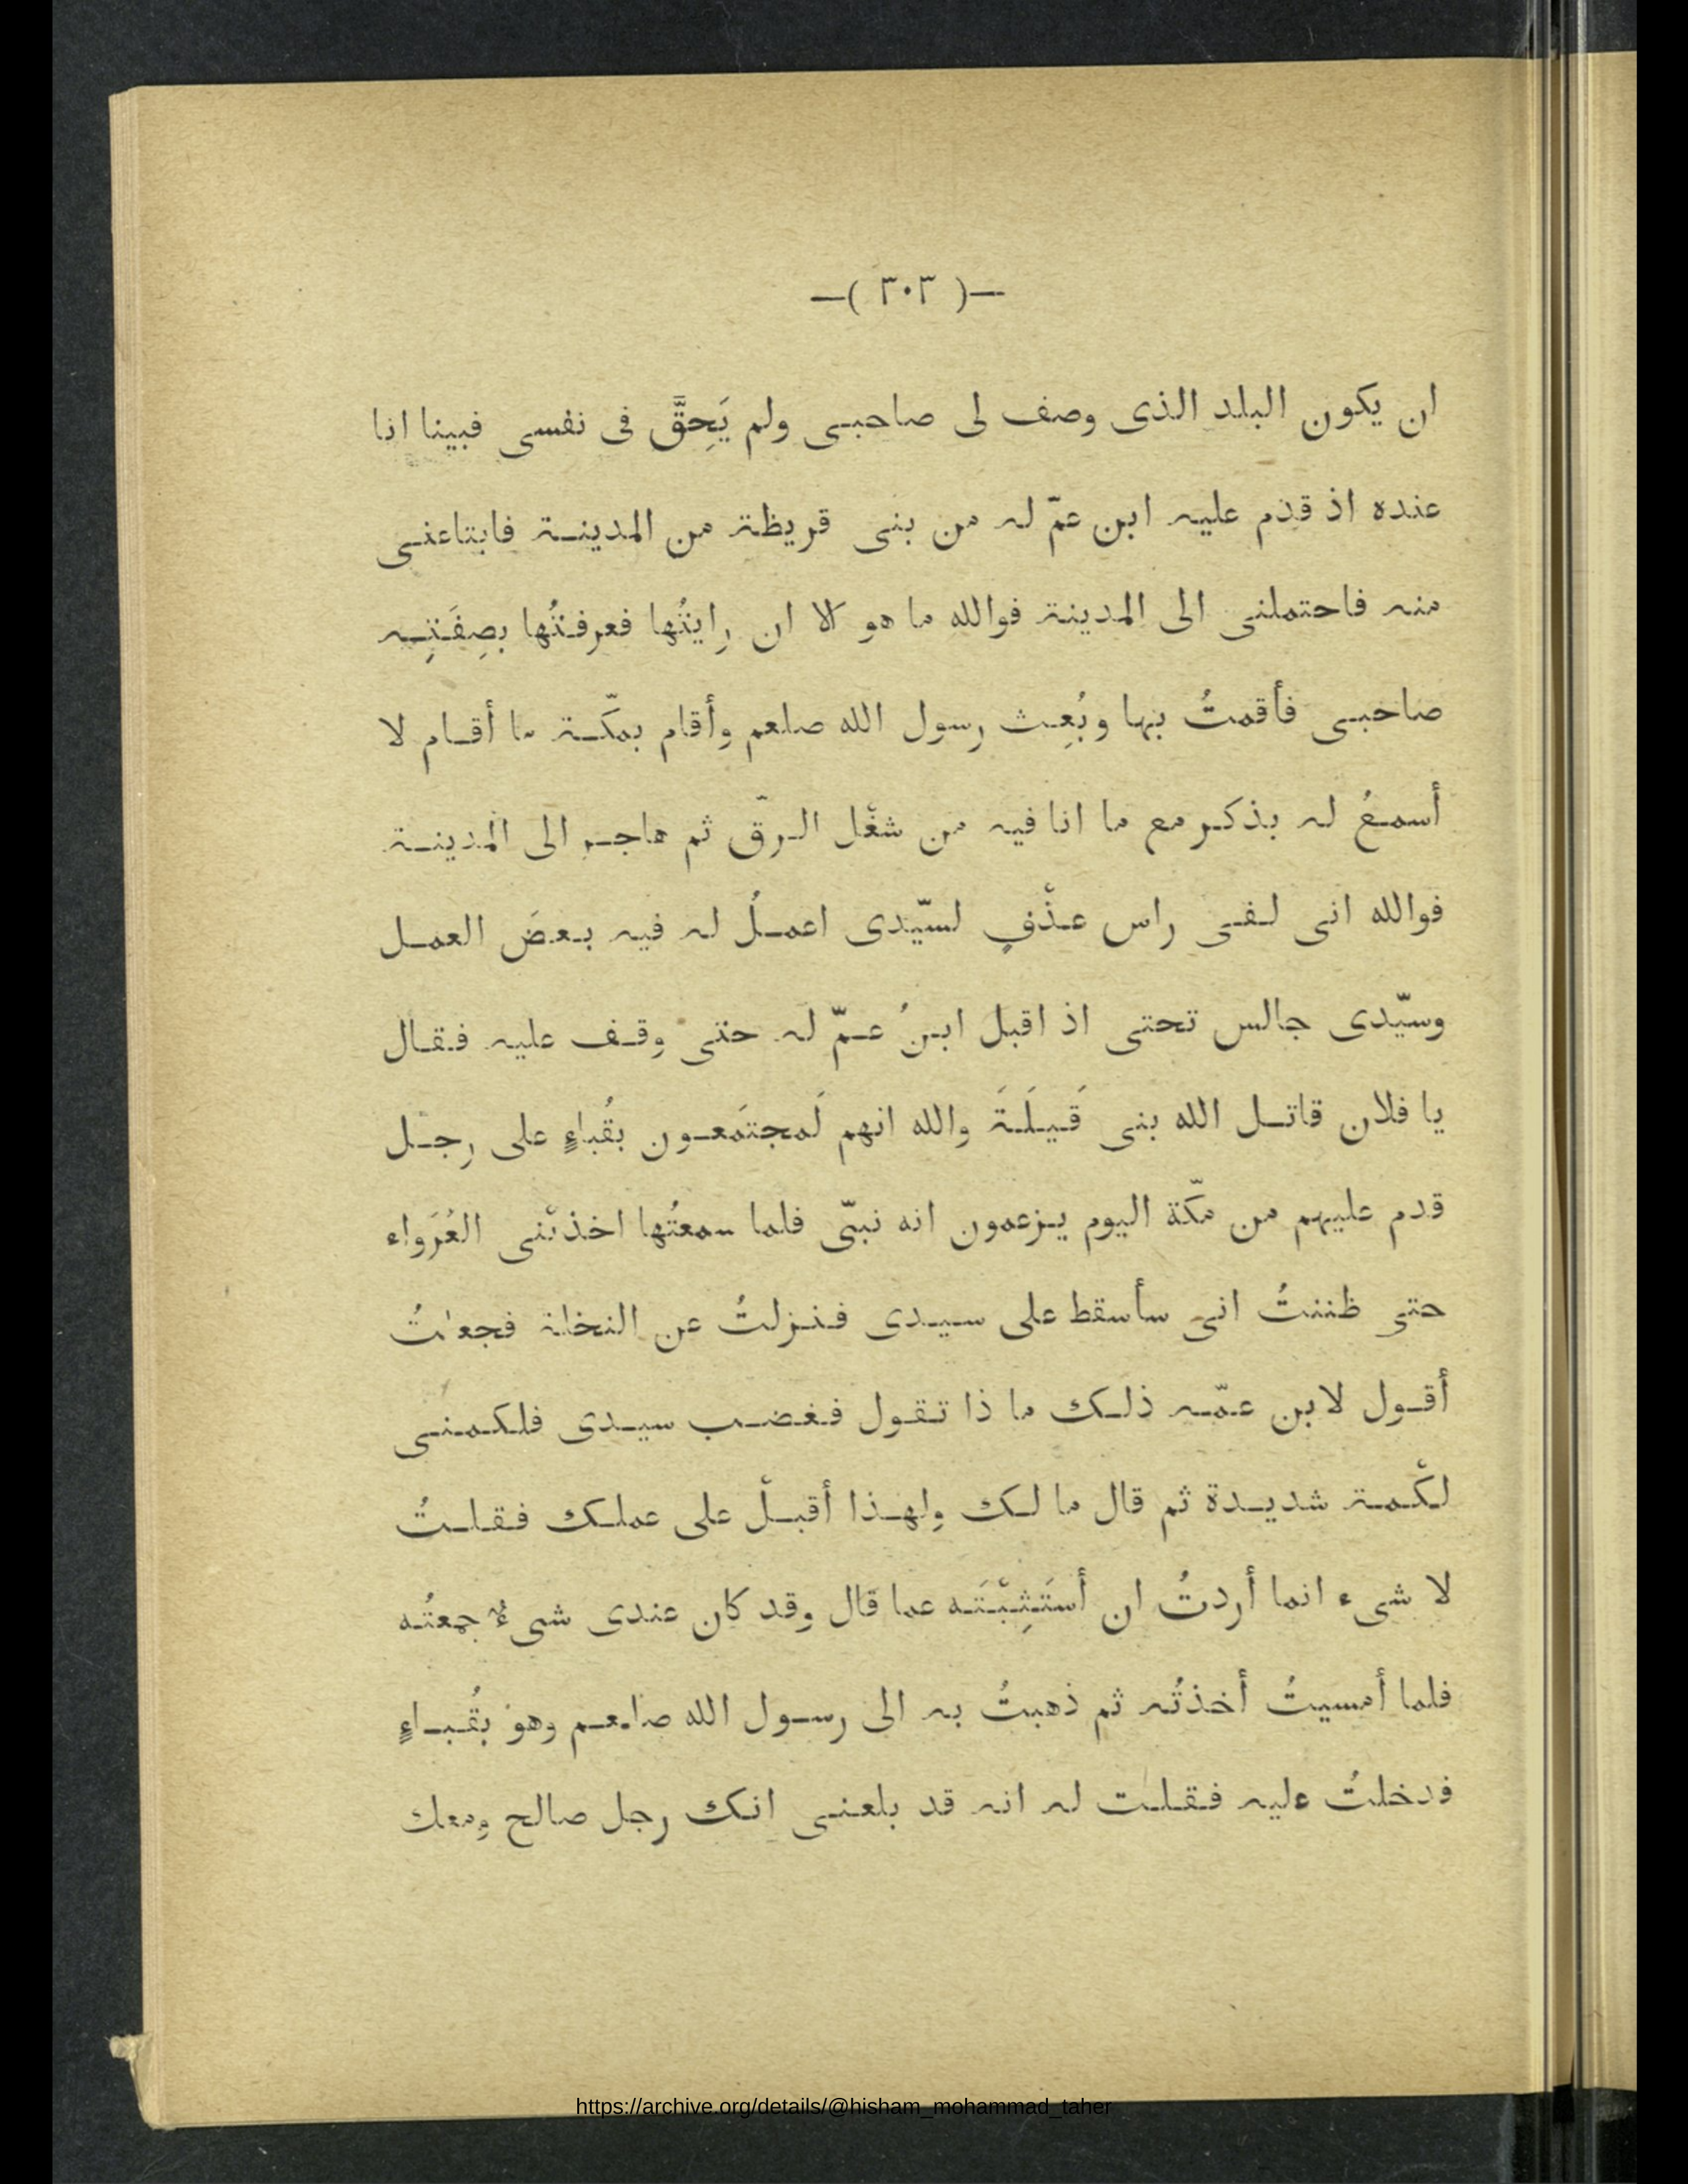 —( ٣٠٣ )—
ان يكون البلد الذى وصف لى صاحبى ولم يَحِقَّ فى نفسى فبينا انا
عنده اذ قدم عليه ابن عمّ له من بنى قريظة من المدينة فابتاعنى
منه فاحتملنى الى المدينة فوالله ما هو الا ان رايتُها فعرفتُها بصِفَتِه
صاحبى فأقمتُ بها وبُعِث رسول الله صلعم وأقام بمكّة ما أقام لا
أسمعُ له بذكر مع ما انا فيه من شغْل الرقّ ثم هاجر الى المدينة
فوالله انى لفى راس عذْفٍ لسيّدى اعملُ له فيه بعضَ العمل
وسيّدى جالس تحتى اذ اقبل ابنُ عمّ له حتى وقف عليه فقال
يا فلان قاتل الله بنى قَيلَةَ والله انهم لَمجتمَعون بقُباءٍ على رجل
قدم عليهم من مكّة اليوم يزعمون انه نبىّ فلما سمعتُها اخذتْنى العُرَواء
حتى ظننتُ انى سأسقط على سيدى فنزلتُ عن النخلة فجعلتُ
أقول لابن عمّه ذلك ما ذا تقول فغضب سيدى فلكمنى
لكْمة شديدة ثم قال ما لك ولهذا أقبلْ على عملك فقلتُ
لا شىء انما أردتُ ان أستَثِبْتَه عما قال وقد كان عندى شىءٌ جمعتُه
فلما أمسيتُ أخذتُه ثم ذهبتُ به الى رسول الله صلعم وهو بقُباءٍ
فدخلتُ عليه فقلت له انه قد بلعنى انك رجل صالح ومعك
https://archive.org/details/@hisham_mohammad_taher